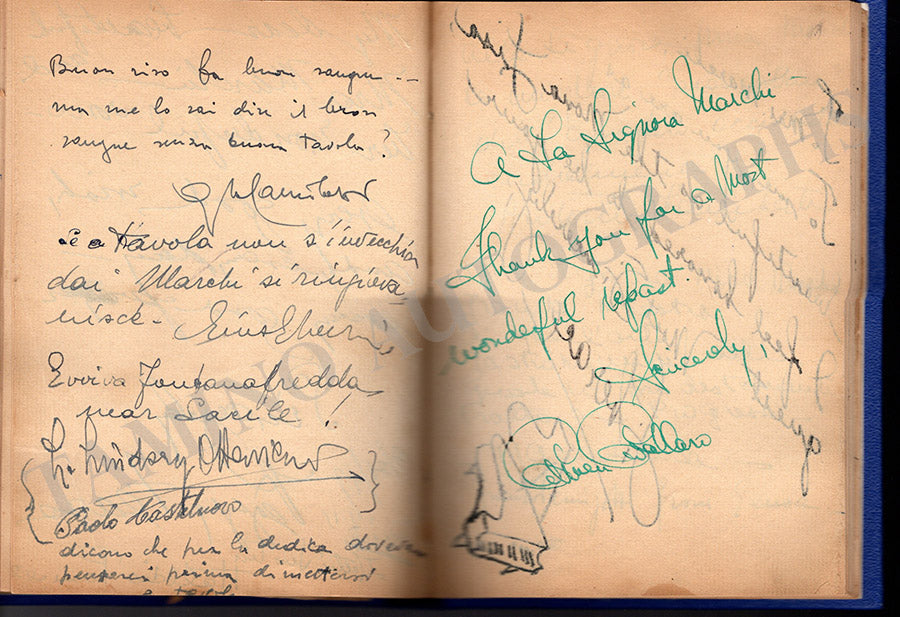 Buon riso fa buon sangue --
ma me lo sai dire il buon
sangue senza buona tavola?
Se a tavola non s'invecchia
dai Marchi si ringiova-
nisce-
Evviva Fontanafredda
near Sacile!
Lindsay
Paolo Castelnuovo
dicono che per la dedica dovevan
pensarci prima di mettersi
a
A La Signora Marchi -
Thank you for a most
wonderful repast.
Sincerely,
TAMINO AUTOGRAPHS